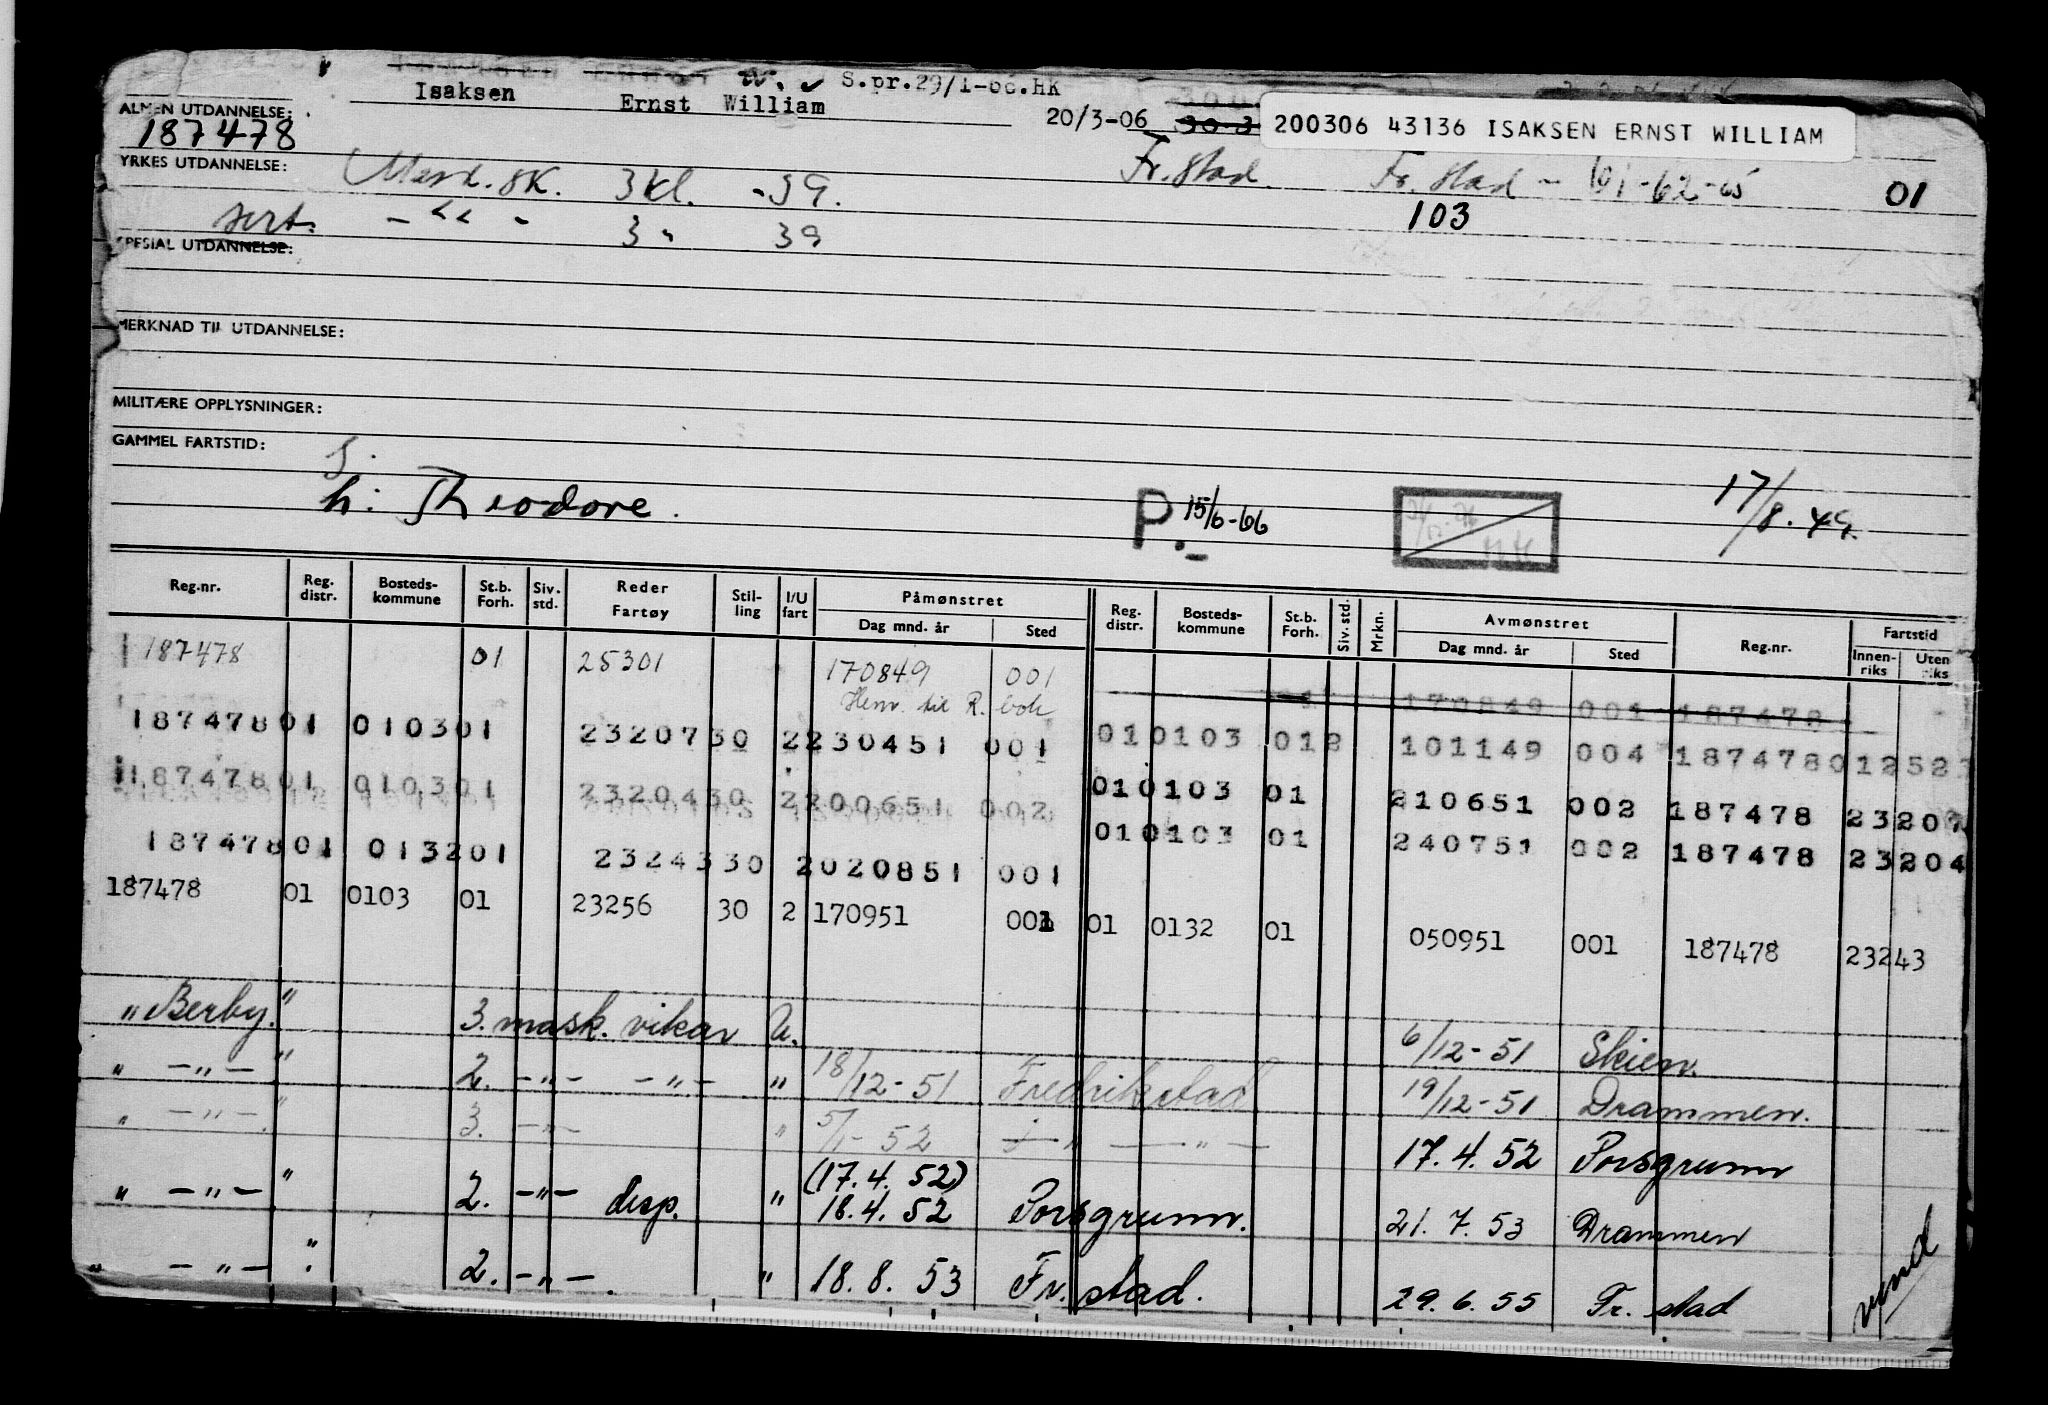 S.pr.29/1-66.HK
Isaksen Ernst William 20/3-06
200306 43136 ISAKSEN ERNST WILLIAM
ALMEN UTDANNELSE:
187478
YRKES UTDANNELSE: Mask. sk. 3 kl. -39. Fr.stad. Fr. stad - 61-62-65 01
sert. - " - 3 " 39 103
SPESIAL UTDANNELSE:
MERKNAD TIL UTDANNELSE:
MILITÆRE OPPLYSNINGER:
GAMMEL FARTSTID:
h: Theodore. P. 15/6-66 17/8. 49.
Reg.nr. Reg. distr. Bosteds-kommune St.b. Forh. Siv. std. Reder Fartøy Stil-ling I/U fart Påmønstret Dag mnd. år Sted Reg. distr. Bosteds-kommune St.b. Forh. Siv. std. Mrkn. Avmønstret Dag mnd. år Sted Reg.nr. Fartstid Innen-riks Uten riks
187478 01 25301 170849 001
Henv. til R. bok 170849 001 187478
18747801 010301 2320730 2230451 001 010103 012 101149 004 187478012521
18747801 010301 2320430 2200651 002 010103 01 210651 002 187478 23207
18747801 013201 2324330 2020851 001 010103 01 240751 002 187478 23204
187478 01 0103 01 23256 30 2 170951 01 0132 01 050951 001 187478 23243
"Berby." 3. mask. vikar U. 6/12-51 Skien.
" -"- " 2. -"- -"- " 18/12-51 Fredrikstad 19/12-51 Drammen.
" -"- " 3. -"- " 5/1-52 -"- 17.4.52 Porsgrunn
" -"- " 2. -"- disp. " (17.4.52) 18.4.52 Porsgrunn. 21.7.53 Drammen
" -"- " 2. -"- " 18.8.53 Fr.stad. 29.6.55 Fr.stad
vend